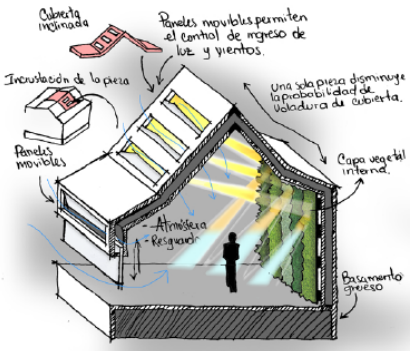 Cubierta
inclinada
Paneles movibles permiten
el control de ingreso de
luz y vientos.
Incrustación de la pieza
Una sola pieza disminuye
la probabilidad de
voladura de cubierta.
Paneles
movibles
Capa vegetal
interna.
- Atmósfera
- Resguardo
Basamento
grueso